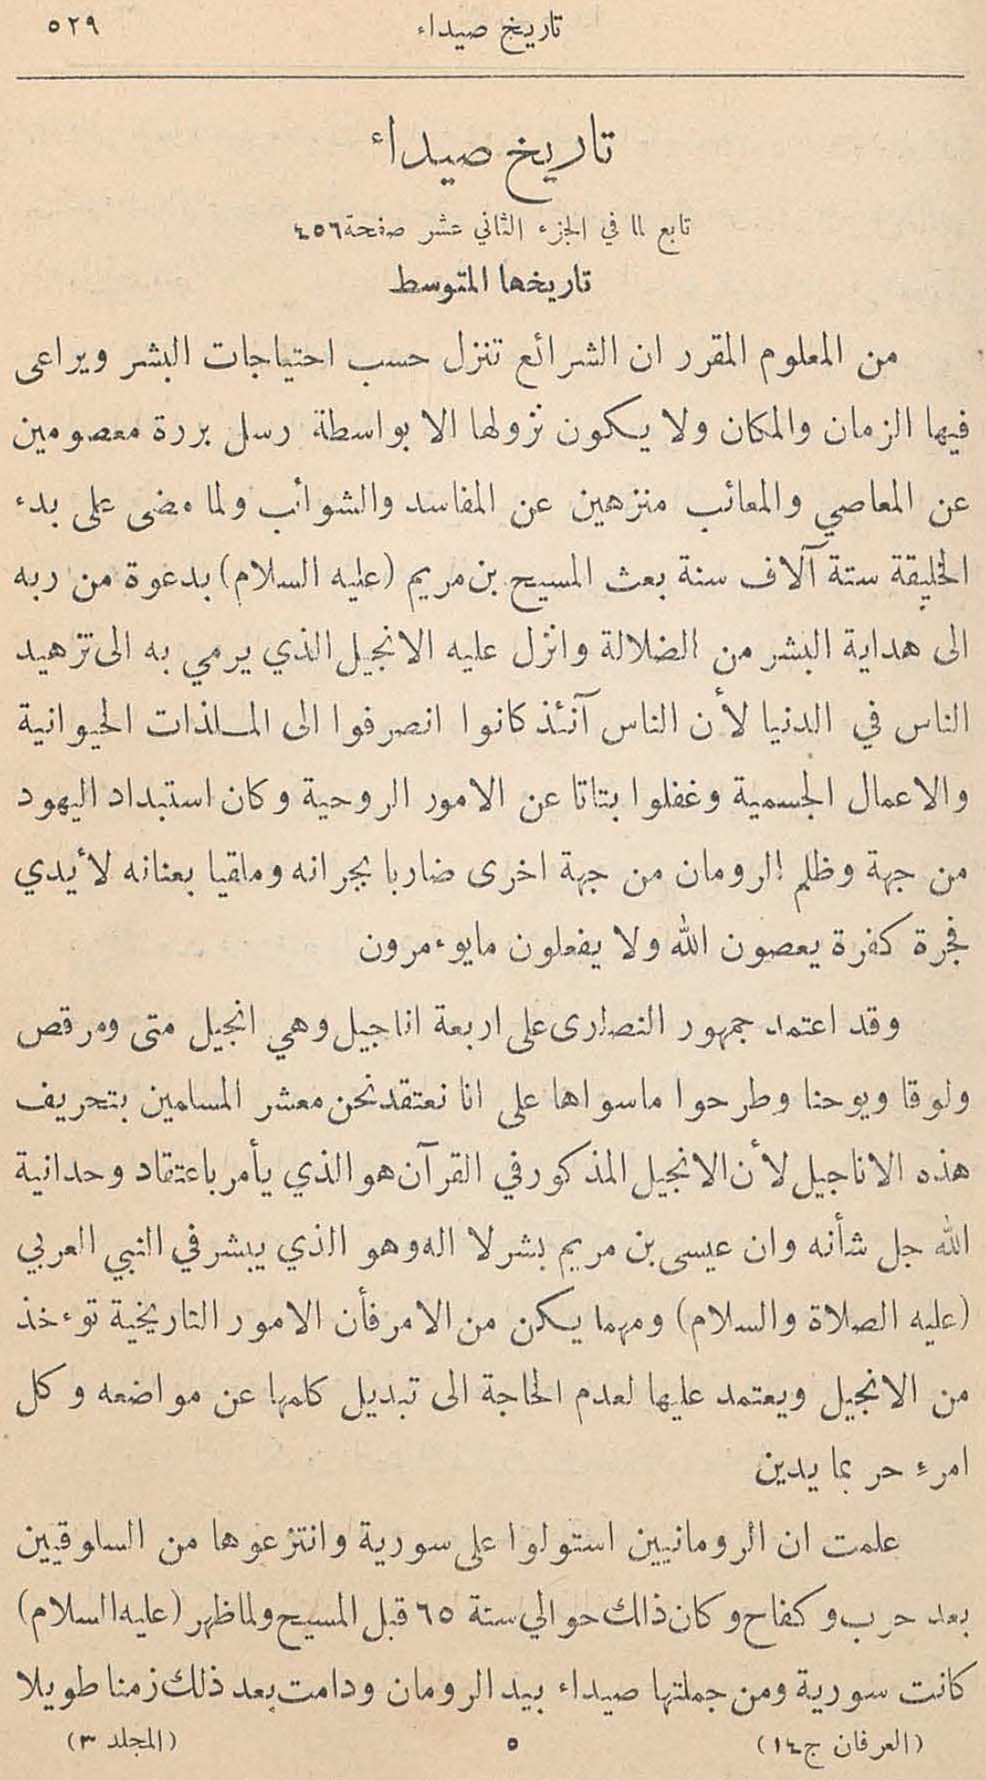 تاريخ صيداء ٥٢٩
تاريخ صيداء
تابع لما في الجزء الثاني عشر صفحة ٤٥٦
تاريخها المتوسط
من المعلوم المقرر ان الشرائع تنزل حسب احتياجات البشر ويراعى
فيها الزمان والمكان ولا يكون نزولها الا بواسطة رسل بررة معصومين
عن المعاصي والمعائب منزهين عن المفاسد والشوائب ولما مضى على بدء
الخليقة ستة آلاف سنة بعث المسيح بن مريم (عليه السلام) بدعوة من ربه
الى هداية البشر من الضلالة وانزل عليه الانجيل الذي يرمي به الى تزهيد
الناس في الدنيا لأن الناس آنئذ كانوا انصرفوا الى الملذات الحيوانية
والاعمال الجسمية وغفلوا بتاتا عن الامور الروحية وكان استبداد اليهود
من جهة وظلم الرومان من جهة اخرى ضاربا بجرانه وملقيا بعنانه لأيدي
فجرة كفرة يعصون الله ولا يفعلون مايوءمرون
وقد اعتمد جمهور النصارى على اربعة اناجيل وهي انجيل متى ومرقص
ولوقا ويوحنا وطرحوا ماسواها على انا نعتقد نحن معشر المسلمين بتحريف
هذه الاناجيل لأن الانجيل المذكور في القرآن هو الذي يأمر باعتقاد وحدانية
الله جل شأنه وان عيسى بن مريم بشر لا اله وهو الذي يبشر في النبي العربي
(عليه الصلاة والسلام) ومهما يكن من الامر فأن الامور التاريخية توءخذ
من الانجيل ويعتمد عليها لعدم الحاجة الى تبديل كلمها عن مواضعه وكل
امرءٍ حر بما يدين
علمت ان الرومانيين استولوا على سورية وانتزعوها من السلوقيين
بعد حرب وكفاح وكان ذالك حوالي سنة ٦٥ قبل المسيح ولما ظهر (عليه السلام)
كانت سورية ومن جملتها صيداء بيد الرومان ودامت بعد ذلك زمنا طويلا
(العرفان ج١٤) ٥ (المجلد ٣)